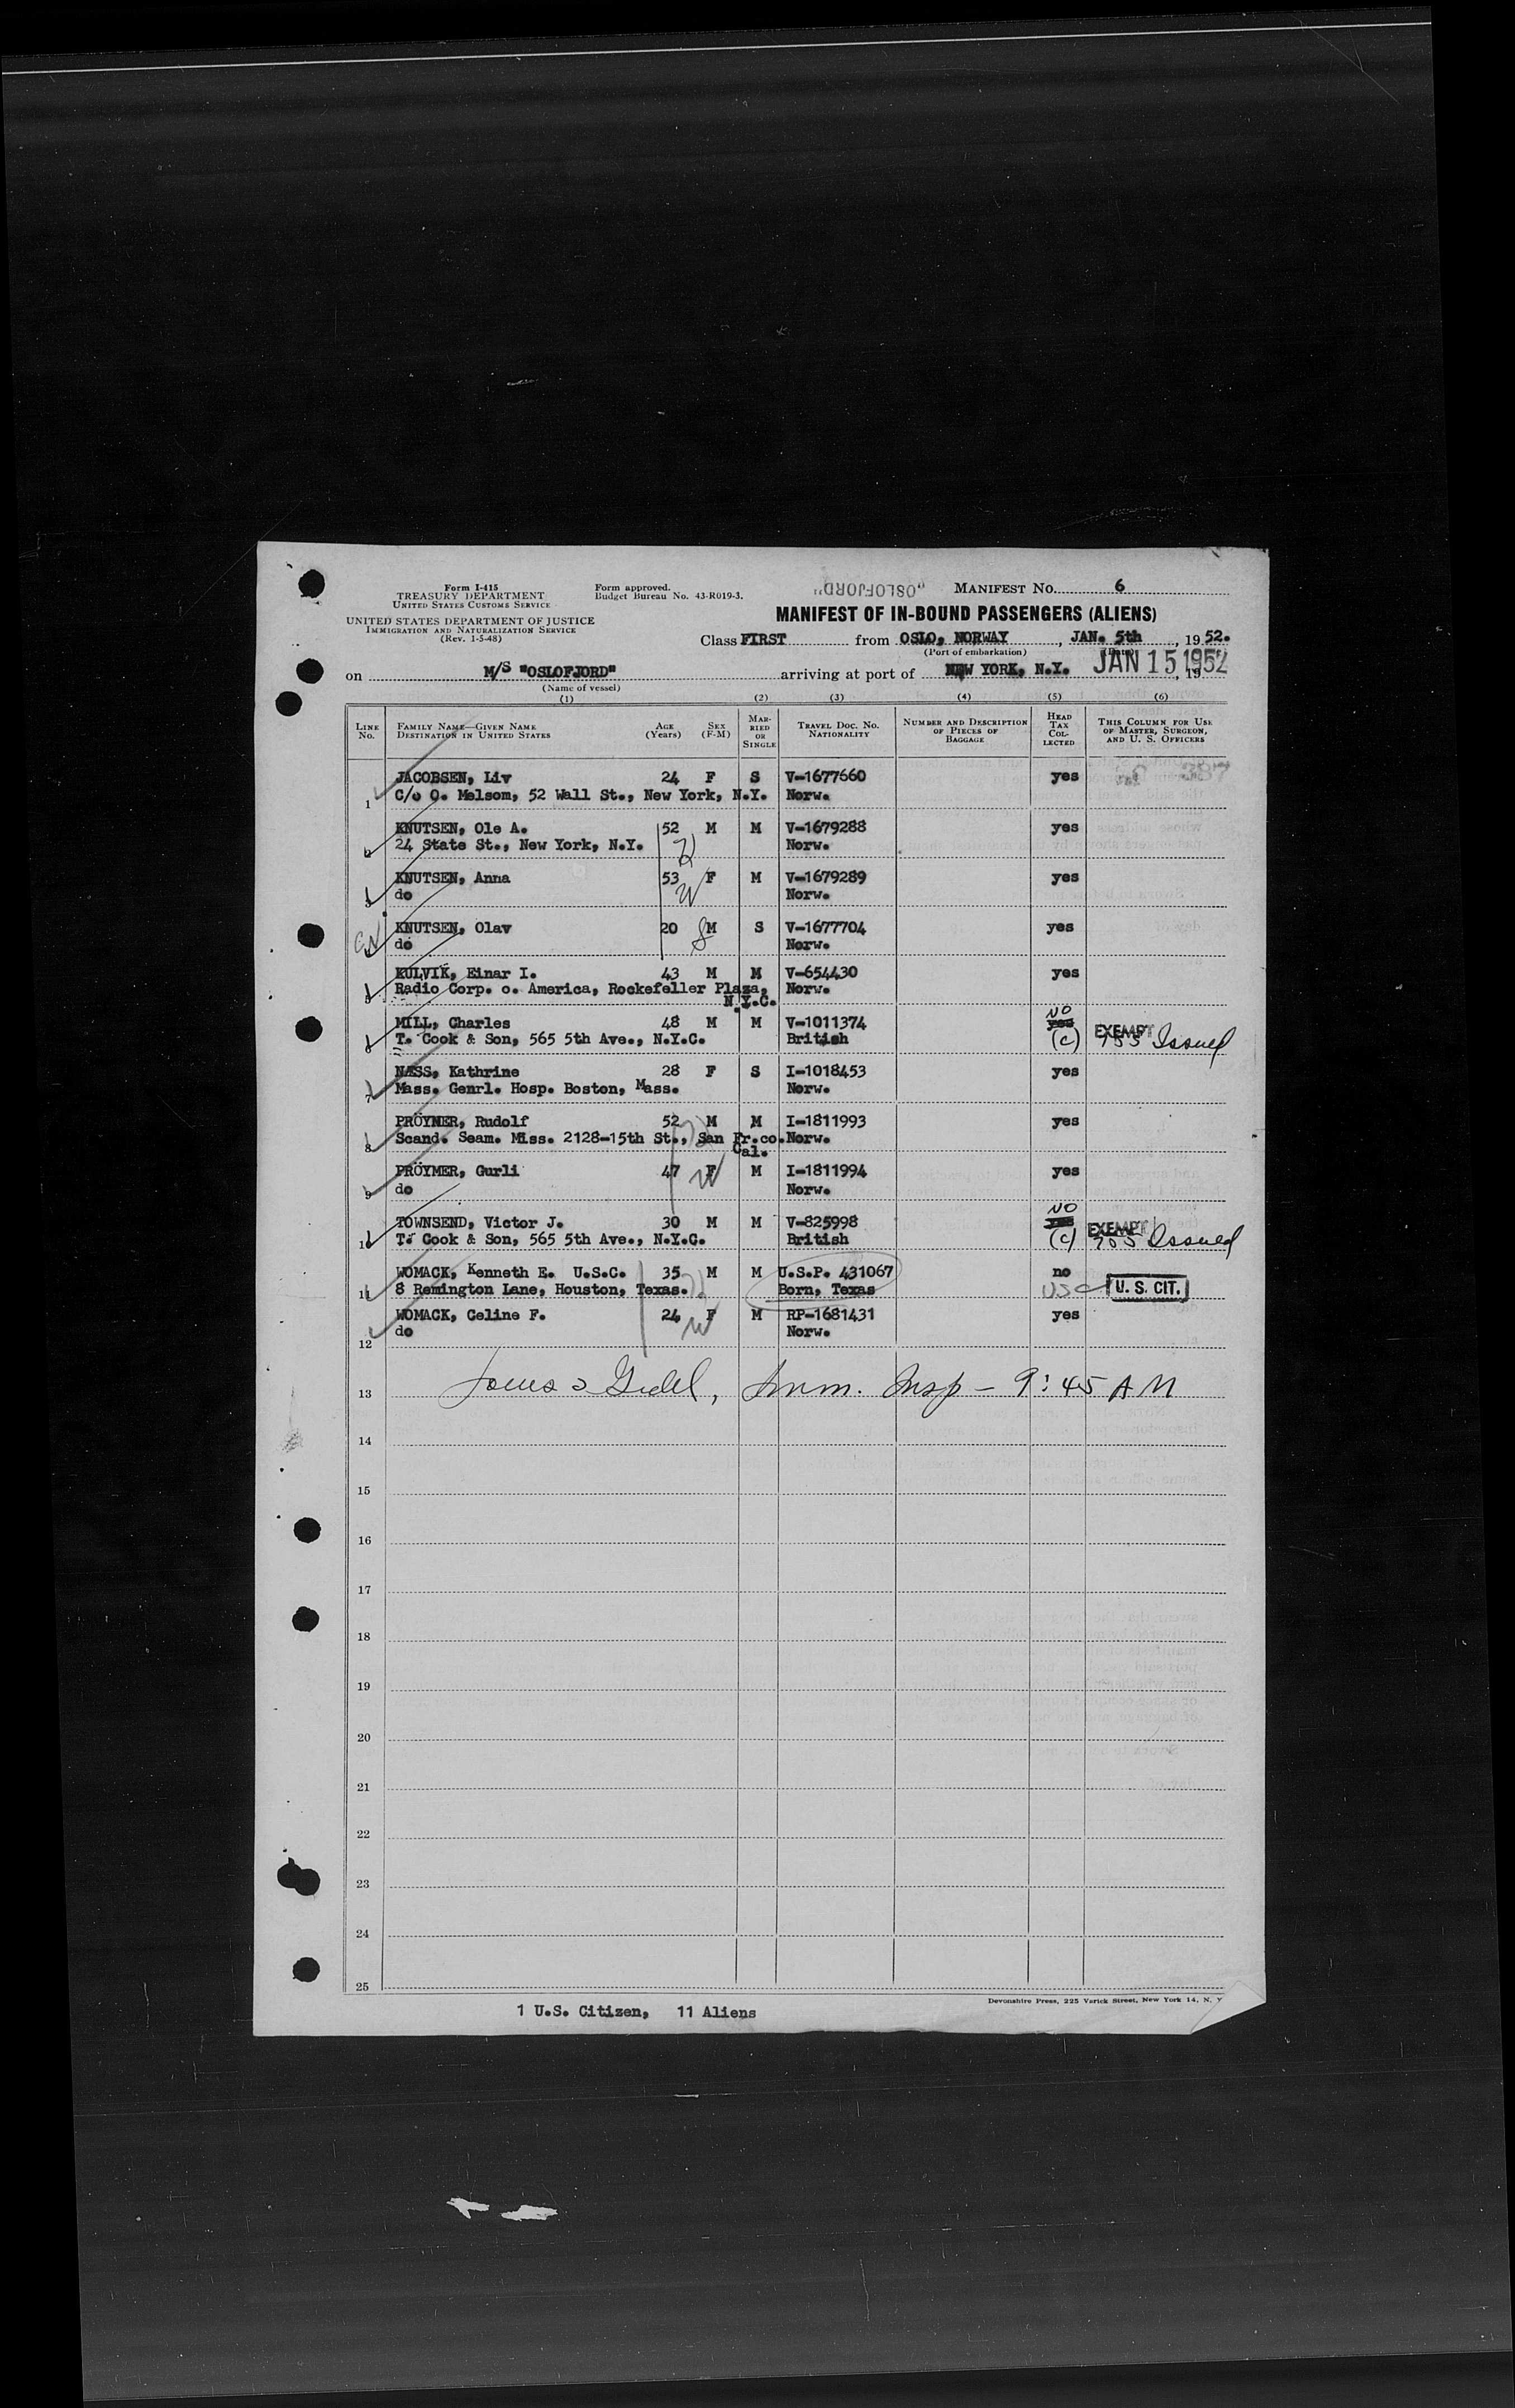 Form I-415
TREASURY DEPARTMENT
UNITED STATES CUSTOMS SERVICE
UNITED STATES DEPARTMENT OF JUSTICE
IMMIGRATION AND NATURALIZATION SERVICE
(Rev. 1-5-48)
Form approved.
Budget Bureau No. 43-R019-3.
"OSLOFJORD"
MANIFEST No. 6
MANIFEST OF IN-BOUND PASSENGERS (ALIENS)
Class FIRST from OSLO, NORWAY, JAN. 5th, 1952.
(Port of embarkation)
on M/S "OSLOFJORD" arriving at port of NEW YORK, N.Y. JAN 15 1952, 19
(Name of vessel)
(1) (2) (3) (4) (5) (6)
LINE No. FAMILY NAME—GIVEN NAME DESTINATION IN UNITED STATES AGE (Years) SEX (F-M) MARRIED OR SINGLE TRAVEL DOC. NO. NATIONALITY NUMBER AND DESCRIPTION OF PIECES OF BAGGAGE HEAD TAX COLLECTED THIS COLUMN FOR USE OF MASTER, SURGEON, AND U. S. OFFICERS
JACOBSEN, Liv 24 F S V-1677660 yes
1 C/o O. Melsom, 52 Wall St., New York, N.Y. Norw.
KNUTSEN, Ole A. 52 M M V-1679288 yes
2 24 State St., New York, N.Y. H Norw.
KNUTSEN, Anna 53 F M V-1679289 yes
3 do W Norw.
KNUTSEN, Olav 20 M S V-1677704 yes
do S Norw.
KULVIK, Einar I. 43 M M V-654430 yes
5 Radio Corp. o. America, Rockefeller Plaza, Norw.
N.Y.C.
NO
MILL, Charles 48 M M V-1011374 yes EXEMPT
6 T. Cook & Son, 565 5th Ave., N.Y.C. British (c) 755 Issued
NÆSS, Kathrine 28 F S I-1018453 yes
7 Mass. Genrl. Hosp. Boston, Mass. Norw.
PRÖYMER, Rudolf 52 M M I-1811993 yes
8 Scand. Seam. Miss. 2128-15th St., San Fr.co. Norw.
Cal.
PRÖYMER, Gurli 47 F M I-1811994 yes
9 do W Norw.
NO
TOWNSEND, Victor J. 30 M M V-825998 yes EXEMPT
10 T. Cook & Son, 565 5th Ave., N.Y.C. British (c) 755 Issued
WOMACK, Kenneth E. U.S.C. 35 M M U.S.P. 431067 no
11 8 Remington Lane, Houston, Texas. Born, Texas USC U. S. CIT.
WOMACK, Celine F. 24 F M RP-1681431 yes
12 do W Norw.
13 Imm. Insp - 9:45 AM
14
15
16
17
18
19
20
21
22
23
24
25
Devonshire Press, 225 Varick Street, New York 14, N. Y.
1 U.S. Citizen, 11 Aliens